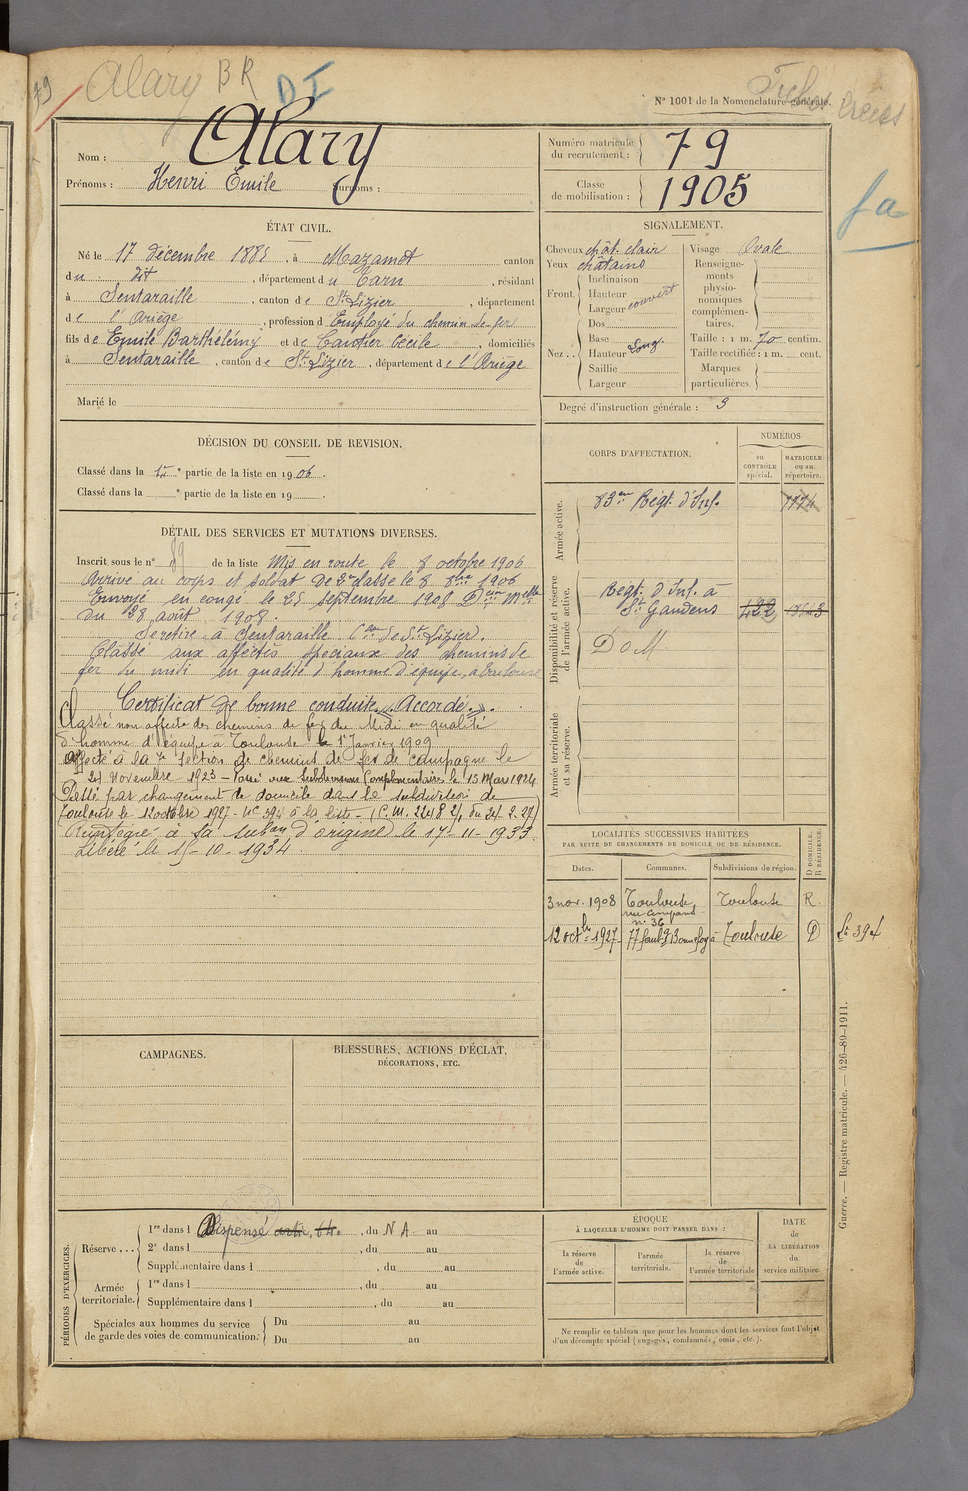 79 Alary BR DI
Fiches créées
N° 1001 de la Nomenclature générale.
Nom : Alary
Prénoms : Henri Emile Surnoms :
Numéro matricule du recrutement : 79
Classe de mobilisation : 1905
fa
ÉTAT CIVIL.
Né le 17 décembre 1885, à Mazamet canton
du dit, département du Tarn, résidant
à Sentaraille, canton de St Lizier, département
de l'Ariège, profession d'Employé du chemin de fer
fils de Emile Barthélémy et de Cantier Cécile, domiciliés
à Sentaraille, canton de St Lizier, département de l'Ariège
Marié le
SIGNALEMENT.
Cheveux chât. clair
Yeux châtains
Front Inclinaison
Hauteur
Largeur couvert
Nez Dos
Base
Hauteur Long.
Saillie
Largeur
Visage Ovale
Renseignements physionomiques complémentaires.
Taille : 1 m. 70 centim.
Taille rectifiée : 1 m. cent.
Marques particulières.
Degré d'instruction générale : 3
DÉCISION DU CONSEIL DE REVISION.
Classé dans la 1re partie de la liste en 1906.
Classé dans la e partie de la liste en 19 .
CORPS D'AFFECTATION.
NUMÉROS
au CONTRÔLE spécial.
MATRICULE ou au répertoire.
Armée active.
83me Régt. d'Inf.
Disponibilité et réserve de l'armée active.
Régt. d'Inf. à
St Gaudens 422
DoM
Armée territoriale et sa réserve.
DÉTAIL DES SERVICES ET MUTATIONS DIVERSES.
Inscrit sous le n° 89 de la liste Mis en route le 8 octobre 1906
Arrivé au corps et soldat de 2e classe le 8 8bre 1906
Envoyé en congé le 25 septembre 1908 Don Melle
du 28 août 1908.
Se retire à Sentaraille Con de St Lizier.
Classé aux affectés spéciaux des chemins de
fer du midi en qualité d'homme d'équipe, à Toulouse
Certificat de bonne conduite « Accordé ».
Classé non affecté des chemins de fer du Midi en qualité
d'homme d'équipe à Toulouse le 1er Janvier 1909
Affecté à la 7e section de chemins de fer de campagne le
24 Novembre 1923 - Passé aux Subdivisions Complémentaires le 15 Mars 1924
Passé par changement de domicile dans la subdivision de
Toulouse le 12 octobre 1927 - N° 394 à la liste - (C.M. 2248 2/1 du 24.2.27)
Réintégré à sa subon d'origine le 17-11-1933
Libéré le 15-10-1934.
LOCALITÉS SUCCESSIVES HABITÉES
PAR SUITE DE CHANGEMENTS DE DOMICILE OU DE RÉSIDENCE.
Dates. Communes. Subdivisions de région. D DOMICILE. R RÉSIDENCE.
3 nov. 1908 Toulouse Toulouse R.
n° 36
12 octb 1927 77 faubg Bonnefoy à Toulouse D Lt 394
CAMPAGNES.
BLESSURES, ACTIONS D'ÉCLAT,
DÉCORATIONS, ETC.
PÉRIODES D'EXERCICES.
Réserve...
1re dans l Dispensé, du N A au
2e dans l , du au
Supplémentaire dans l , du au
Armée territoriale.
1re dans l , du au
Supplémentaire dans l , du au
Spéciales aux hommes du service de garde des voies de communication.
Du au
Du au
ÉPOQUE
À LAQUELLE L'HOMME DOIT PASSER DANS :
la réserve de l'armée active.
l'armée territoriale.
la réserve de l'armée territoriale
DATE de LA LIBÉRATION du service militaire.
Ne remplir ce tableau que pour les hommes dont les services font l'objet
d'un décompte spécial (engagés, condamnés, omis, etc.).
Guerre. — Registre matricule. — 426-89-1911.